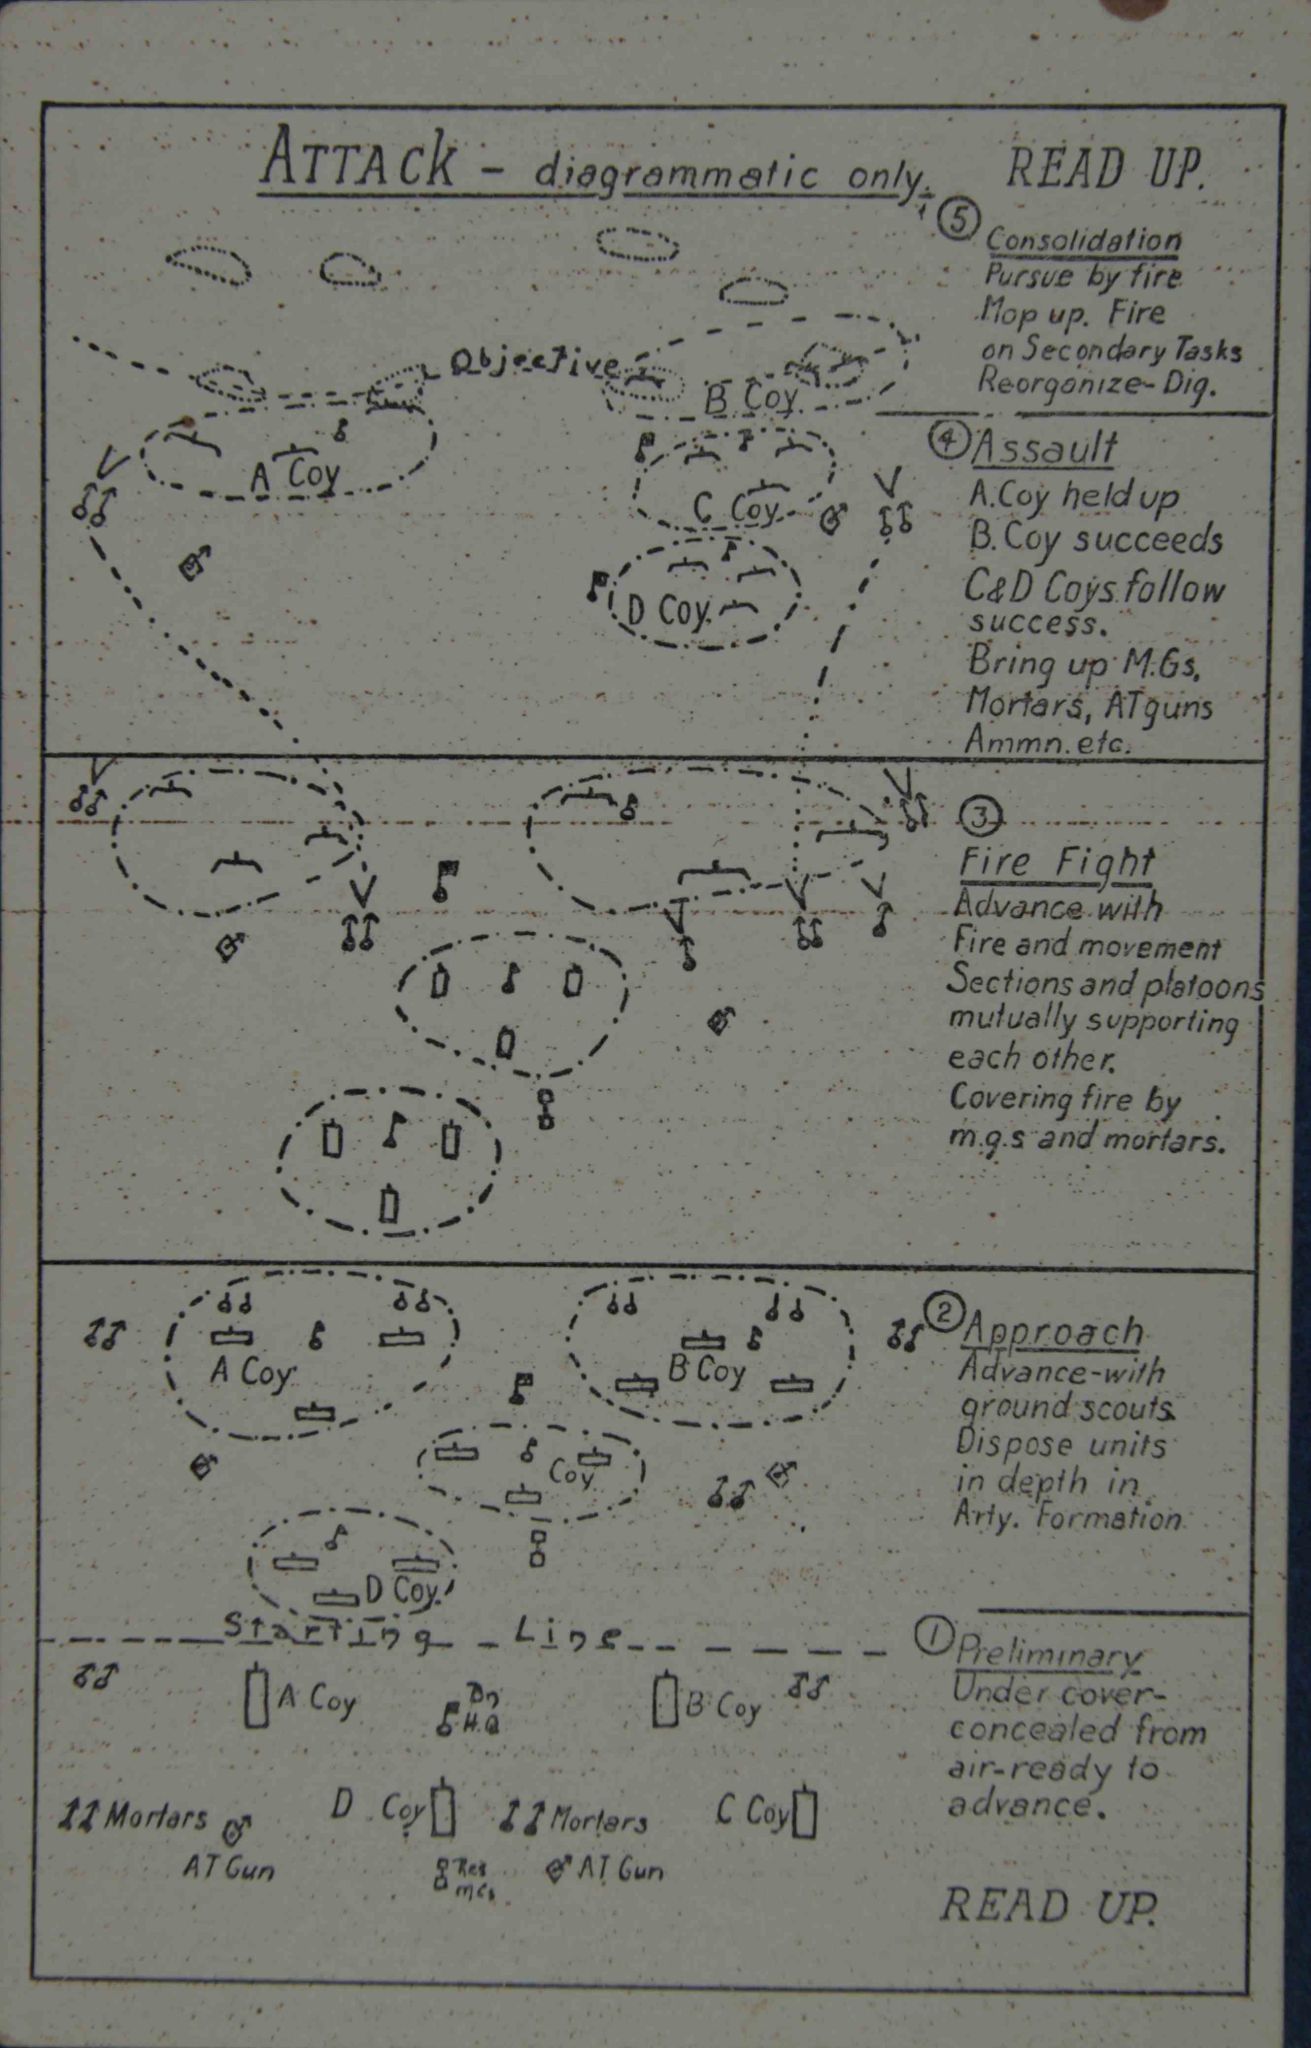 ATTACK - diagrammatic only. READ UP.
5
Consolidation
Pursue by fire
Mop up. Fire
on Secondary Tasks
Reorganize- Dig.
Objective
B Coy.
A Coy
C Coy.
D Coy.
4 Assault
A. Coy held up
B. Coy succeeds
C&D Coys. follow
success.
Bring up M.Gs,
Mortars, AT guns
Ammn. etc.
3
Fire Fight
Advance with
Fire and movement
Sections and platoons
mutually supporting
each other.
Covering fire by
m.g.s and mortars.
2
Approach
Advance-with
ground scouts
Dispose units
in depth in
Arty. Formation
A Coy
B Coy
Coy
D Coy.
Starting Line
1 Preliminary
Under cover-
concealed from
air-ready to
advance.
A Coy
Bn
H.Q
B Coy
Mortars
AT Gun
D Coy
Res
mcs
Mortars
AT Gun
C Coy
READ UP.